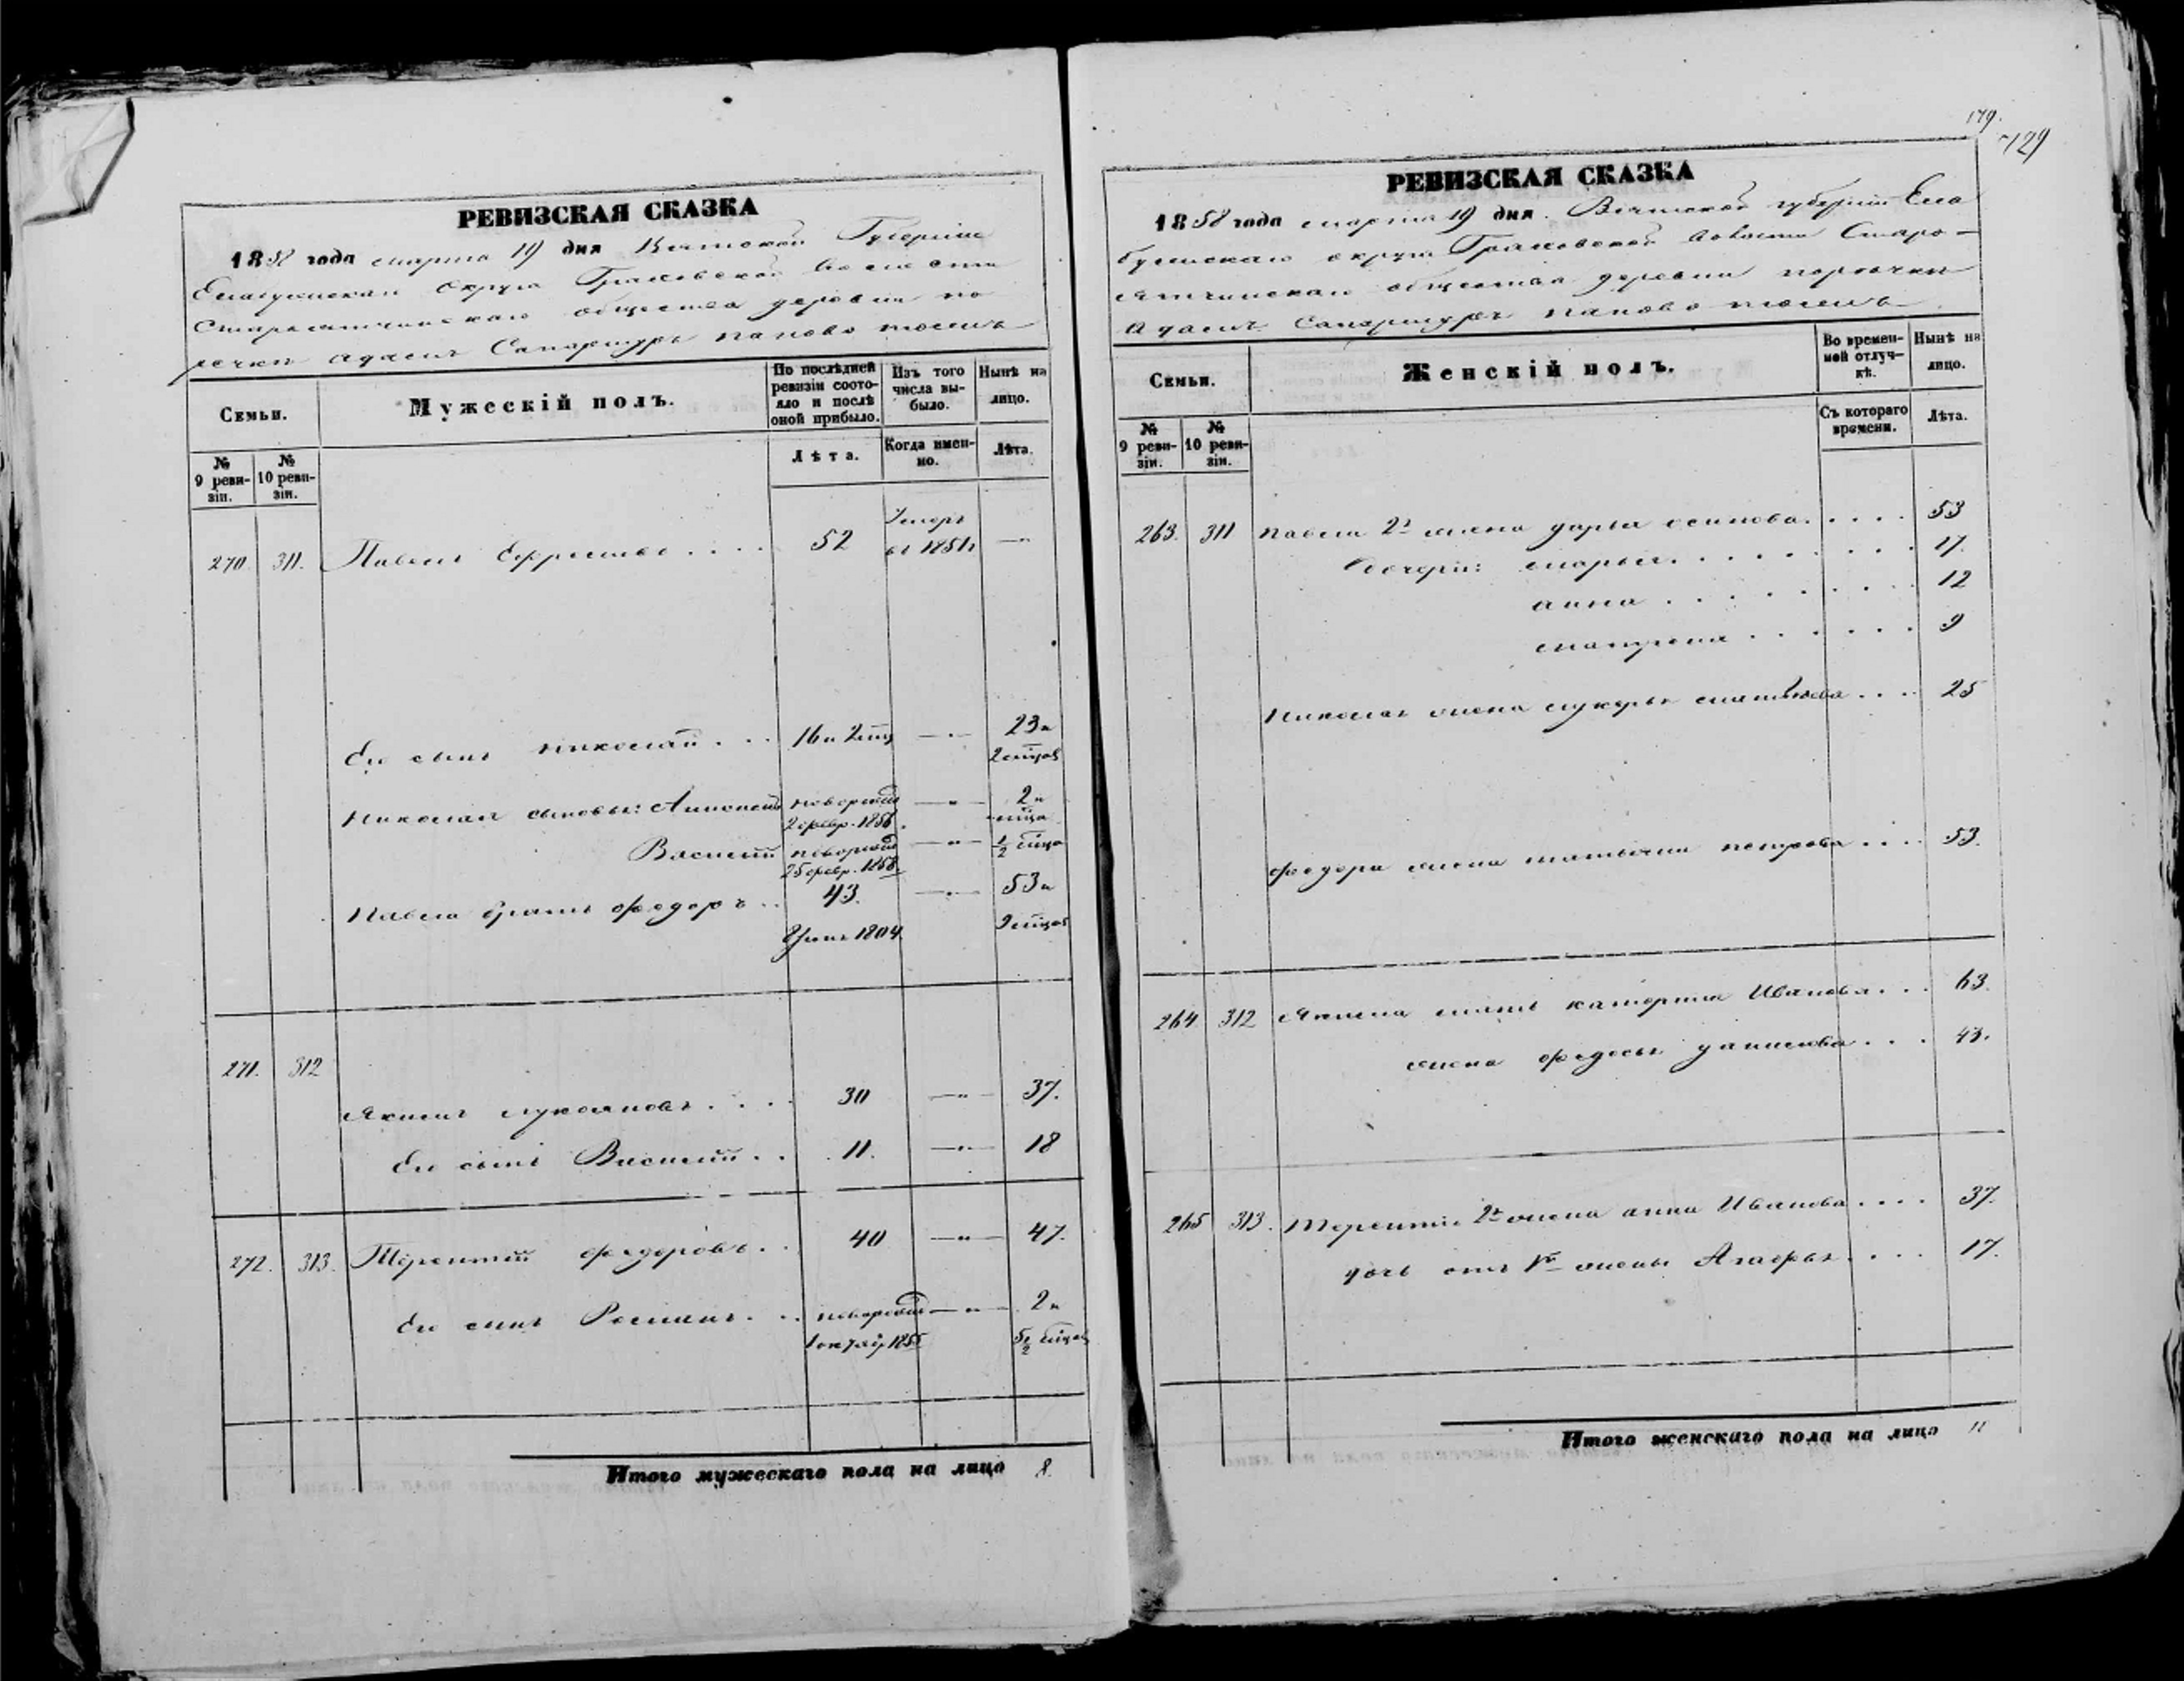 РЕВИЗСКАЯ СКАЗКА
1858 года марта 19 дня Вятской Губерніи
Елабужскаго Округа Граховской волости
общества деревни по
речки Адамъ
Семьи.
Мужескій полъ.
По послѣдней ревизіи состояло и послѣ оной прибыло.
Изъ того числа выбыло.
Нынѣ на лицо.
№ 9 ревизіи.
№ 10 ревизіи.
Лѣта.
Когда именно.
Лѣта.
270. 311. Павелъ Ефремовъ .... 52 Умеръ въ 1851г —
Его сынъ Николай ... 16 и 2 мц — " — 23 и 2 мцов
Николая сыновья: Алексей новорожд 2 февр. 1856. — " — 2 и мца
Василий новорожд 25 февр. 1858. — " — ½ мца
Павла братъ Федоръ .. 43. — " — 53 и 9 мцов
1804.
271. 312
Якимъ Лукояновъ .... 30 — " — 37.
Его сынъ Василий .. 11. — " — 18
272. 313. Терентий Федоровъ .. 40 — " — 47.
Его сынъ Романъ ... новорожд — " — 2 и
1 октяб 1855 5½ мцов
Итого мужескаго пола на лицо 8.
179.
729
РЕВИЗСКАЯ СКАЗКА
1858 года марта 19 дня. Вятской губерніи Ела
бужскаго округа Граховской волости Старо-
ятчинскаго общества деревни поречки
Адамъ
Семьи.
Женскій полъ.
Во временной отлучкѣ.
Нынѣ на лицо.
№ 9 ревизіи.
№ 10 ревизіи.
Съ котораго времени.
Лѣта.
263. 311 Павла 2я жена Дарья Осипова ..... 53
Дочери: Марья ........ 17.
Анна ........ 12
Матрена ...... 9
Николая жена Лукерья .... 25
Федора жена Татьяна Петрова .... 53.
264. 312 Якима мать Катерина Иванова ... 63.
жена Федосья Данилова ... 43.
265 313. Терентия 2я жена Анна Иванова .... 37.
дочь отъ 1й жены Агафья .... 17.
Итого женскаго пола на лицо 11